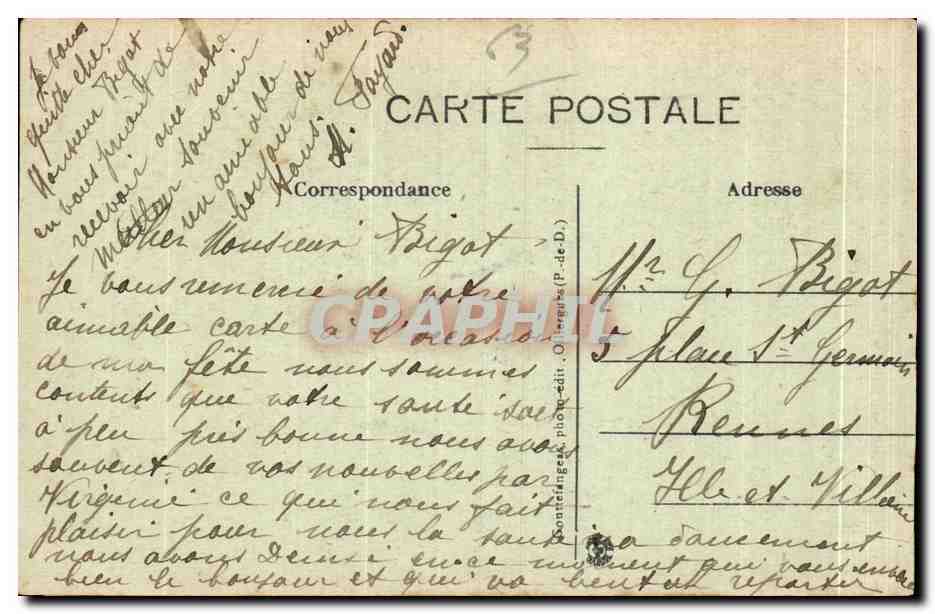 CARTE POSTALE
Correspondance
Adresse
Cher Monsieur Bigot
Je vous remercie de votre
aimable carte à l'occasion
de ma fête nous sommes
contents que votre santé soit
à peu près bonne nous avons
souvent de vos nouvelles par
Virginie ce qui nous fait
plaisir pour nous la santé va doucement
nous avons Denise en ce moment qui vous envoie
bien le bonjour et qui va bientot repartir
Je vous
quitte cher
Monsieur Bigot
en vous priant de
recevoir avec notre
meilleur souvenir
un aimable
bonjour de nous
tous.
M. Fayard.
Mr G. Bigot
5 place St Germain
Rennes
Ille et Villaine
phot-édit. Olliergues (P.-de-D.)
CPAPHIL
B